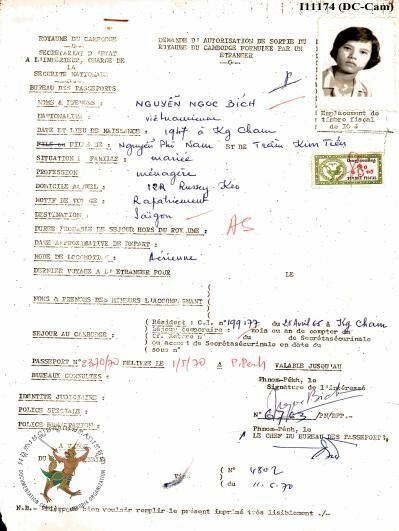 I11174 (DC-Cam)
ROYAUME DU CAMBODGE
SECRETARIAT D'ETAT
A L'INTERIEUR, CHARGE DE
LA
SECURITE NATIONALE
BUREAU DES PASSEPORTS
DEMANDE D'AUTORISATION DE SORTIE DU
ROYAUME DU CAMBODGE FORMULEE PAR UN
ETRANGER
Emplacement de
timbre fiscal
de 10 $
NOMS & PRENOMS : NGUYỄN NGỌC BÍCH
NATIONALITE : vietnamienne
DATE ET LIEU DE NAISSANCE : 1947 à Kg Cham
FILS ou FILLE DE : Nguyễn Phú Nam ET DE Trần Kim Tiền
SITUATION FAMILLE : mariée
PROFESSION : ménagère
DOMICILE ACTUEL : Russey Keo
MOTIF DE VOYAGE : Rapatriement
DESTINATION : Saïgon
DUREE PROBABLE DE SEJOUR HORS DU ROYAUME : AS
DATE APPROXIMATIVE DE DEPART :
MODE DE LOCOMOTION : Aérienne
DERNIER VOYAGE A L'ETRANGER POUR LE
NOMS & PRENOMS DES MINEURS L'ACCOMPAGNANT
SEJOUR AU CAMBODGE :
Résident : C.I. n° 199.177 du 28 Avril 65 à Kg Cham
Séjour temporaire : mois ou an de compter du
ou Accord de Secrétasécurinale en date du
sous n°
PASSEPORT N° 2370/70 DELIVRE LE 1/5/70 A P.Penh VALABLE JUSQU'AU
BUREAUX CONSULTES :
Phnom-Pénh, le
Signature de l'intéressé
Ngọc Bích
IDENTITE JUDICIAIRE :
POLICE SPECIALE :
Phnom-Pénh, le
LE CHEF DU BUREAU DES PASSEPORTS,
Visa
N° 4802
du 11.5.70
N.B.- bien vouloir remplir le présent imprimé très lisiblement ./-